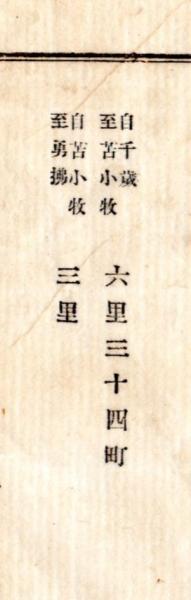 自千歲
至苫小牧
六里三十四町
自苫小牧
至勇拂
三里